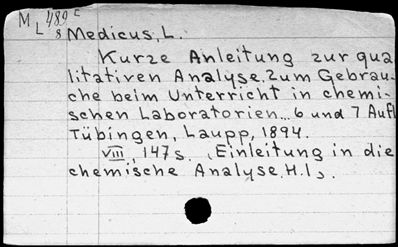 M 489 E
L 8 Medicus, L.
Kurze Anleitung zur qua
litativen Analyse. Zum Gebrau-
che beim Unterricht in chemi-
schen Laboratorien... 6 und 7 Aufl
Tübingen, Laupp, 1894.
VIII, 147 s. (Einleitung in die
chemische Analyse. H.1).